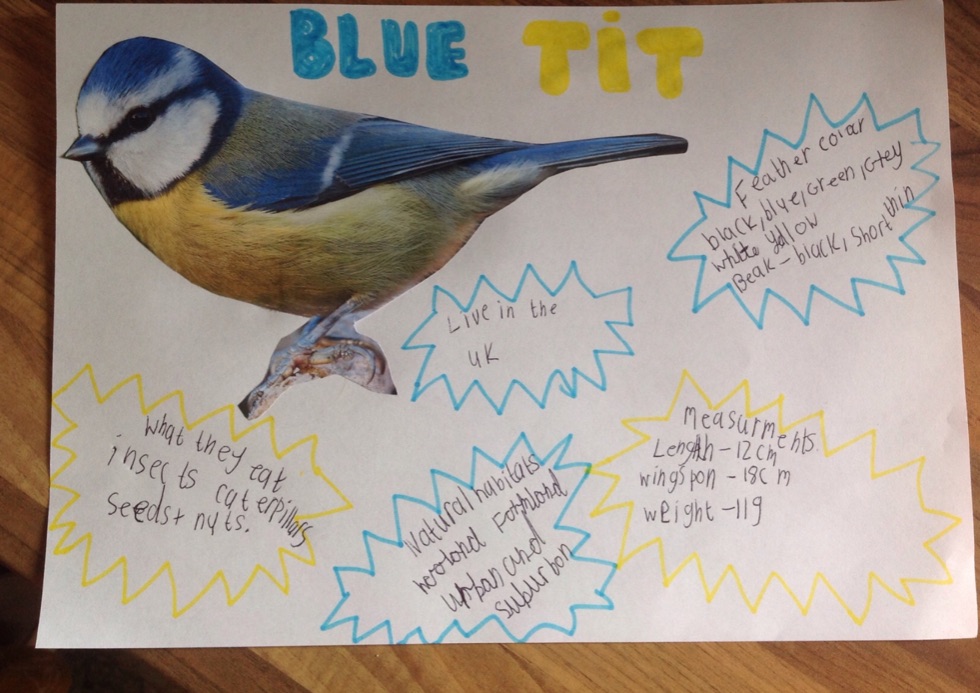 BLUE TiT
Feather colar
black, blue, Green, Grey
white yallow
Beak - black, short thin
Live in the
uk
what they eat
insects caterpillars
seeds + nuts.
Natural habitats
urban and
suburban
Measurments.
Length - 12cm
wingspan - 18cm
weight - 11g